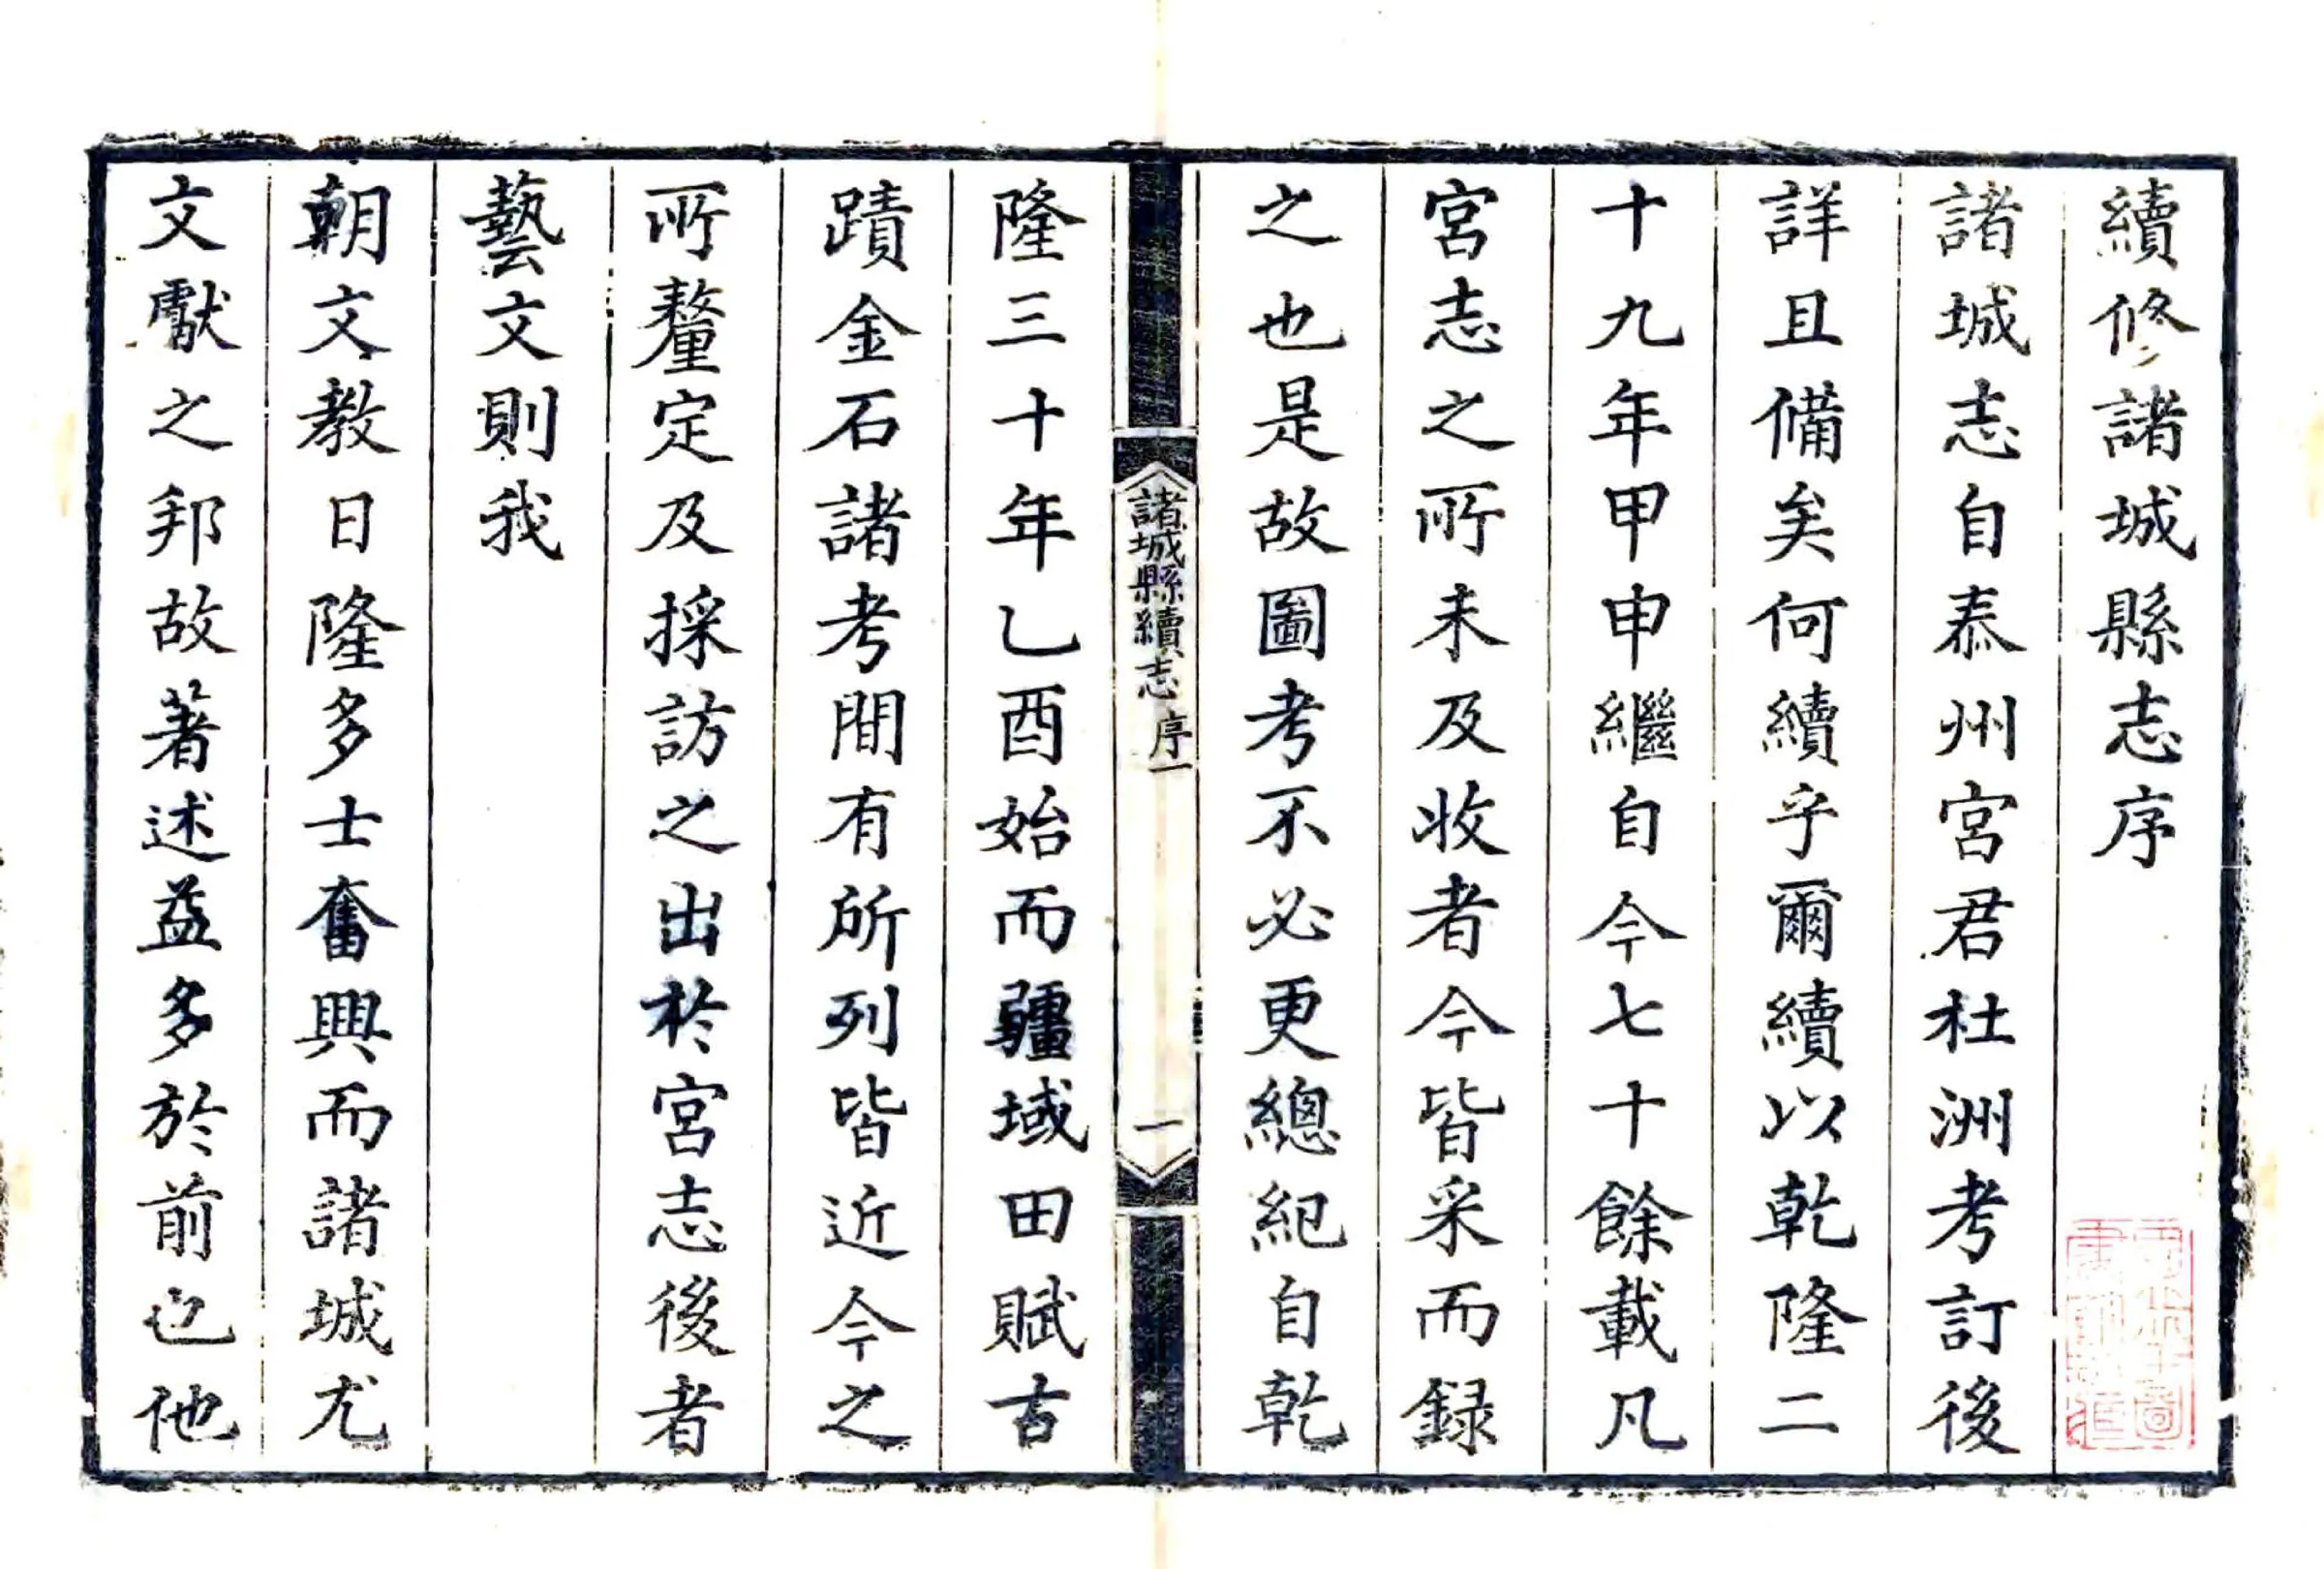 續修諸城縣志序
諸城志自泰州宮君杜洲考訂後
詳且備矣何續乎爾續以乾隆二
十九年甲申繼自今七十餘載凡
宮志之所未及收者今皆采而録
之也是故圖考不必更總紀自乾
諸城縣續志 序一 一
隆三十年乙酉始而疆域田賦古
蹟金石諸考間有所列皆近今之
所釐定及採訪之出於宮志後者
藝文則我
朝文教日隆多士奮興而諸城尤
文獻之邦故著述益多於前也他